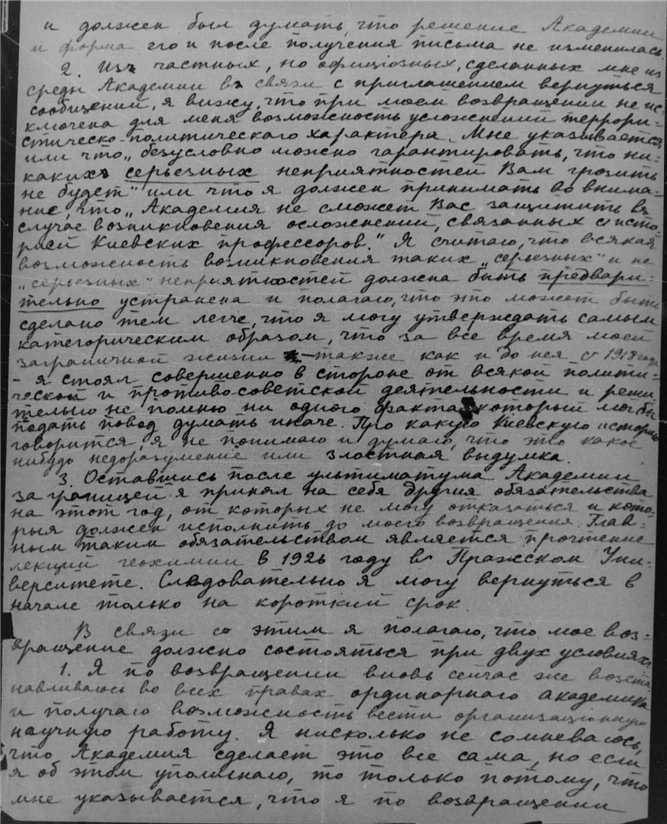 и должен был думать, что решение Академии
и форма его и после получения письма не изменилась.
2. Изъ частных, но официозных, сделанных мне из
среды Академии въ связи с приглашением вернуться
сообщений, я вижу, что при моем возвращении не ис-
ключена для меня возможность усложнений террори-
стическо-политическаго характера. Мне указывается
или что „безусловно можно гарантировать, что ни-
какихъ серьезных неприятностей Вам грозить
не будет" или что я должен принимать во внима-
ние, что „Академия не сможет Вас защитить въ
случае возникновения осложнений, связанных с исто-
рией Киевских профессоров." Я считаю, что всякая
возможность возникновения таких „серьезных" и не
„серьезных" неприятностей должна быть предвари-
тельно устранена и полагаю, что это может быть
сделано тем легче, что я могу утверждать самым
категорическим образом, что за все время моей
заграничной жизни – также как и до нея с 1918 года
- я стоял совершенно в стороне от всякой полити-
ческой и противосоветской деятельности и реши-
тельно не помню ни одного факта который мог бы
подать повод думать иначе. Про какую Киевскую историю
говорится я не понимаю и думаю, что это какое
нибудь недоразумение или злостная выдумка.
3. Оставшись после ультиматума Академии
за границей я принял на себя другия обязательства
на этот год, от которых не могу отказаться и кото-
рыя должен исполнить до моего возвращения. Глав-
ным таким обязательством является прочтение
лекций геохимии в 1926 году в Пражском Уни-
верситете. Следовательно я могу вернуться в
начале только на короткий срок.
В связи с этим я полагаю, что мое воз-
вращение должно состояться при двух условиях:
1. Я по возвращении вновь сейчас же возста-
навливаюсь во всех правах ординарнаго академика
и получаю возможность вести организационную
научную работу. Я нисколько не сомневаюсь,
что Академия сделает это все сама, но если
я об этом упоминаю, то только потому, что
мне указывается, что я по возвращении